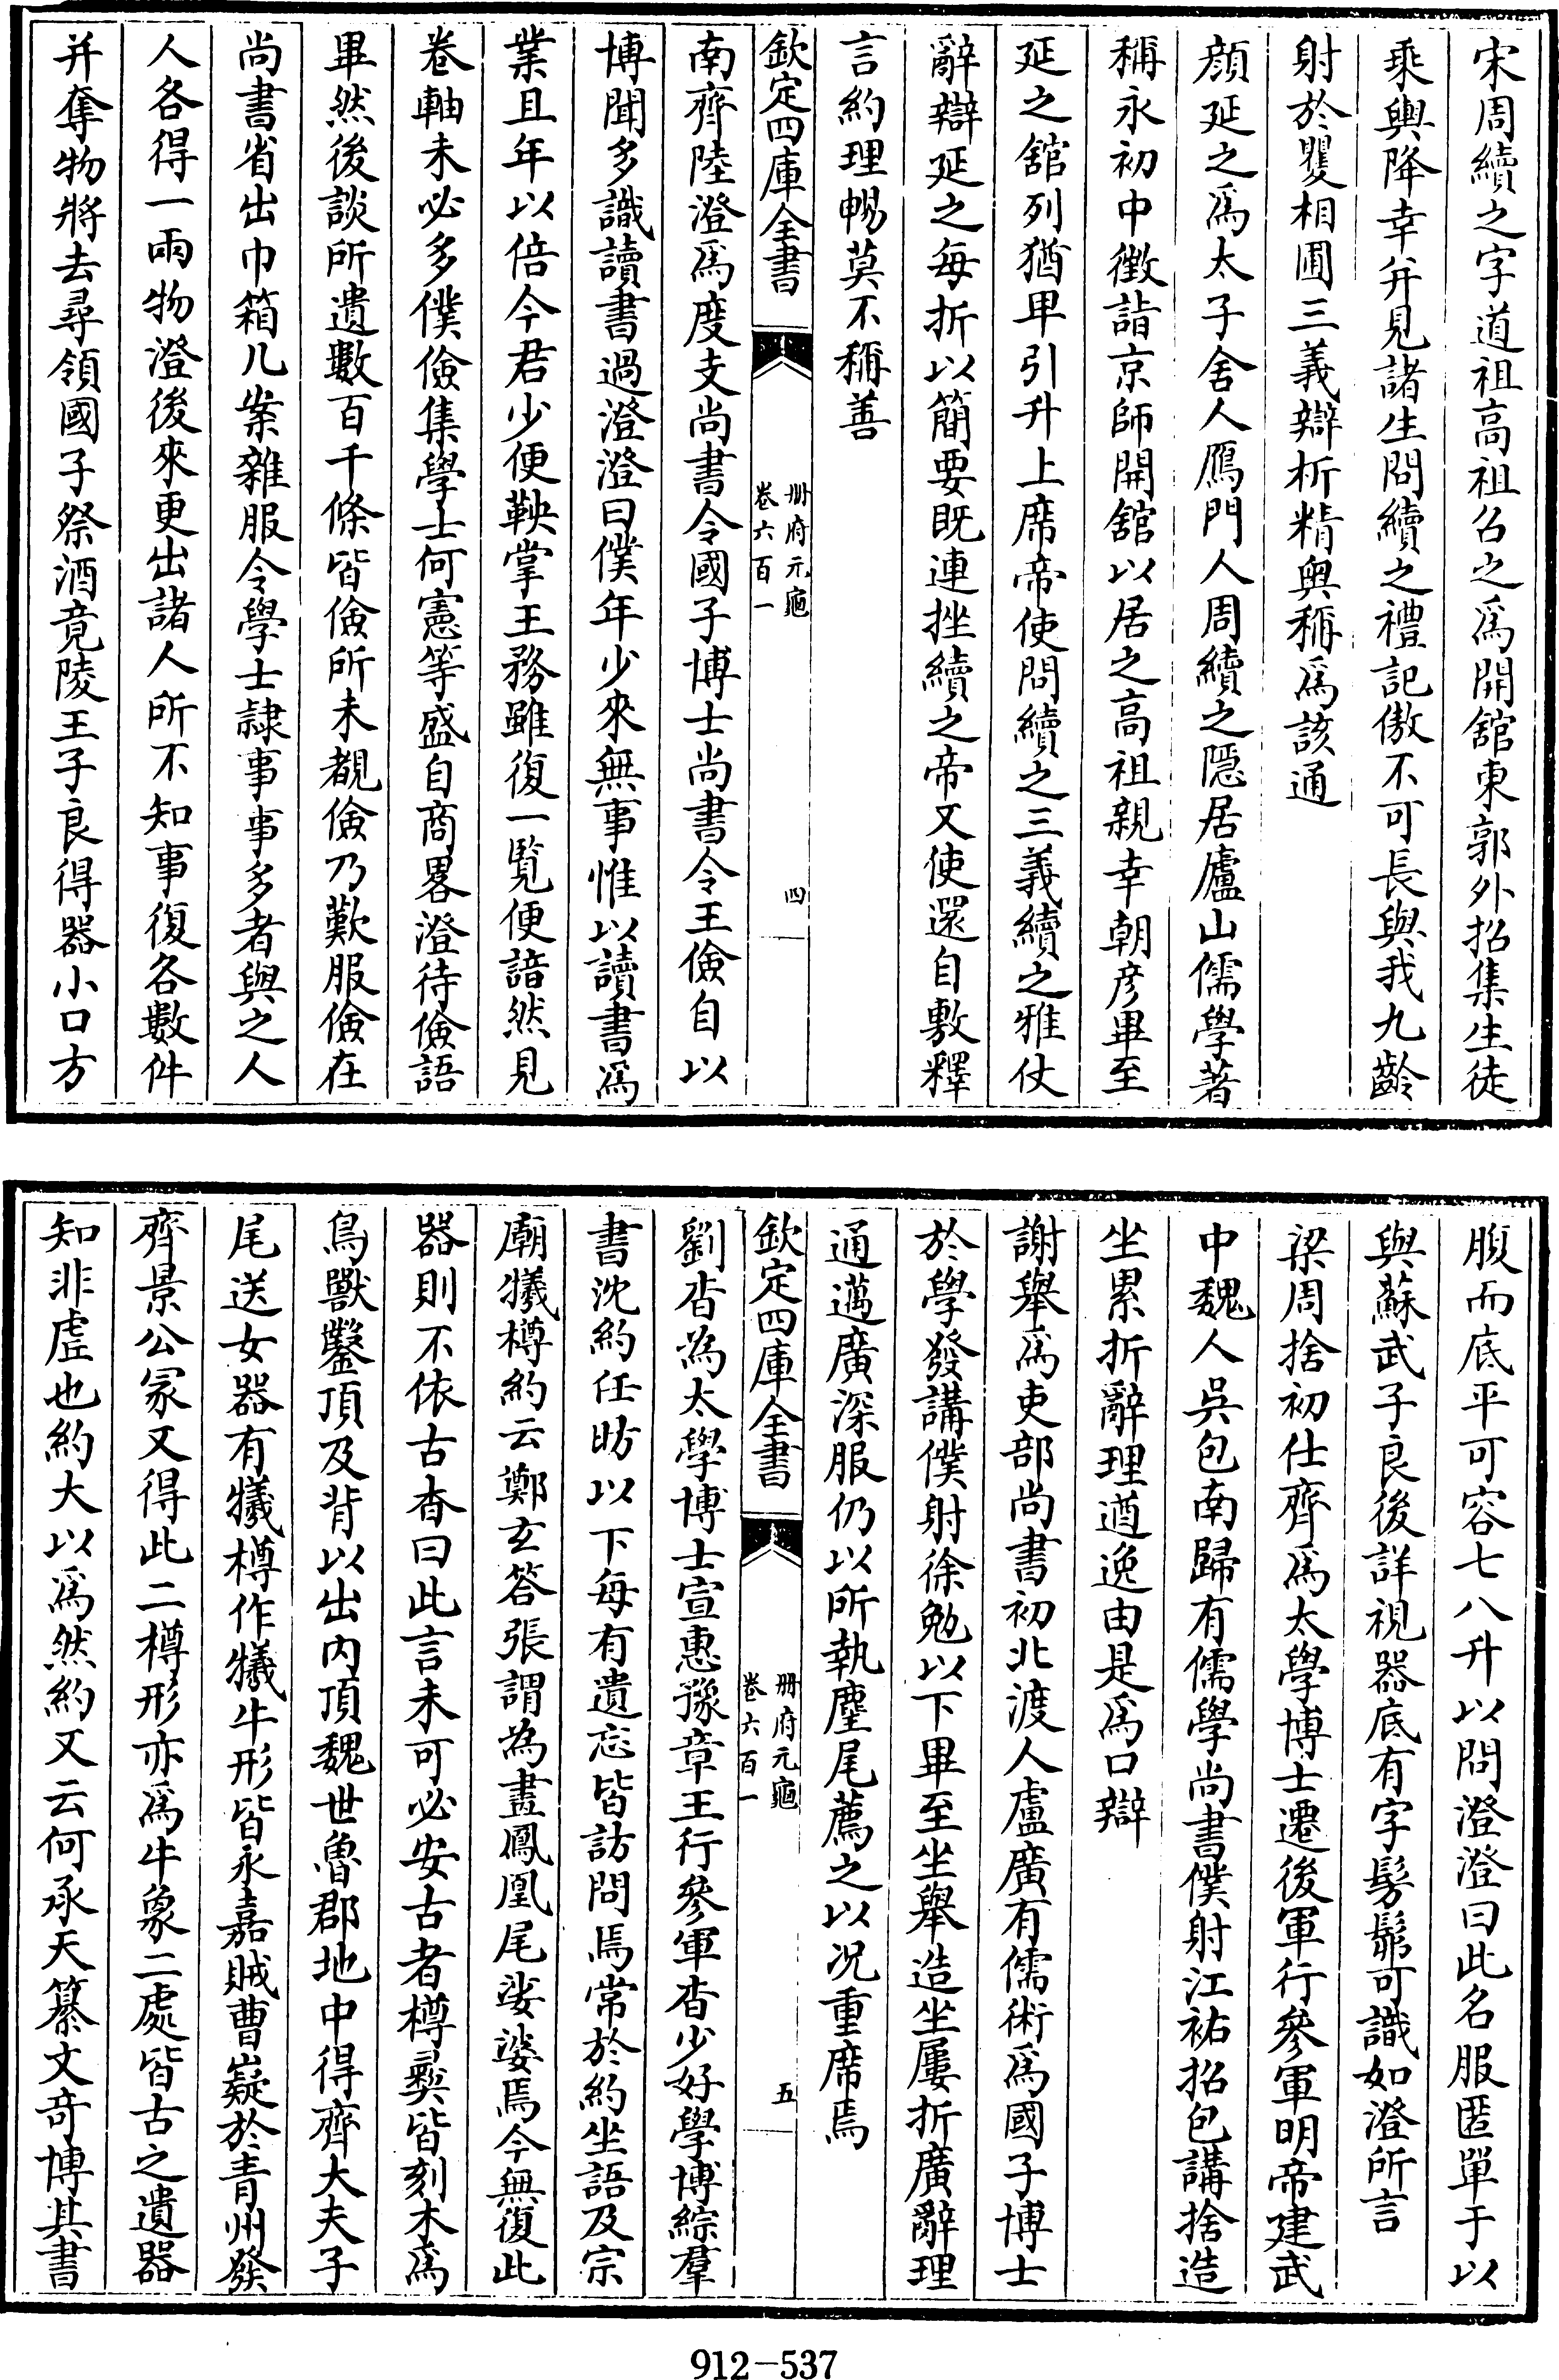 宋周續之字道祖高祖召之爲開舘東郭外招集生徒
乘輿降幸并見諸生問續之禮記傲不可長與我九齡
射於矍相圃三義辯析精奥稱爲該通
顔延之爲太子舍人鴈門人周續之隱居廬山儒學著
稱永初中徵詣京師開舘以居之高祖親幸朝彦畢至
延之舘列猶卑引升上席帝使問續之三義續之雅仗
辭辯延之每折以簡要既連挫續之帝又使還自敷釋
言約理暢莫不稱善
欽定四庫全書
册府元龜
卷六百一
四
南齊陸澄爲度支尚書令國子博士尚書令王儉自以
博聞多識讀書過澄澄曰僕年少來無事惟以讀書爲
業且年以倍今君少便鞅掌王務雖復一覧便諳然見
卷軸未必多僕儉集學士何憲等盛自商畧澄待儉語
畢然後談所遺數百千條皆儉所未覩儉乃歎服儉在
尚書省出巾箱几案雜服令學士隷事事多者與之人
人各得一兩物澄後來更出諸人所不知事復各數件
并奪物將去尋領國子祭酒竟陵王子良得器小口方
腹而底平可容七八升以問澄澄曰此名服匿單于以
與蘇武子良後詳視器底有字髣髴可識如澄所言
梁周捨初仕齊爲太學博士遷後軍行參軍明帝建武
中魏人吳包南歸有儒學尚書僕射江祏招包講捨造
坐累折辭理遒逸由是爲口辯
謝舉爲吏部尚書初北渡人盧廣有儒術爲國子博士
於學發講僕射徐勉以下畢至坐舉造坐屢折廣辭理
通邁廣深服仍以所執麈尾薦之以况重席焉
欽定四庫全書
册府元龜
卷六百一
五
劉杳為太學博士宣惠豫章王行參軍杳少好學博綜羣
書沈約任昉以下每有遺忘皆訪問焉常於約坐語及宗
廟犧樽約云鄭玄答張謂為畫鳳凰尾娑娑焉今無復此
器則不依古杳曰此言未可必安古者樽彛皆刻木爲
鳥獸鑿頂及背以出内頂魏世魯郡地中得齊大夫子
尾送女器有犧樽作犧牛形皆永嘉賊曹嶷於青州發
齊景公冢又得此二樽形亦爲牛象二處皆古之遺器
知非虛也約大以爲然約又云何承天纂文奇博其書
912-537